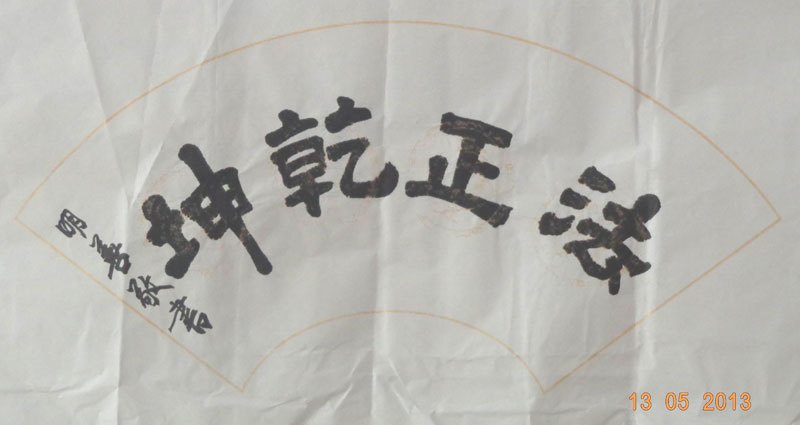 法正乾坤
明善敬書
13 05 2013